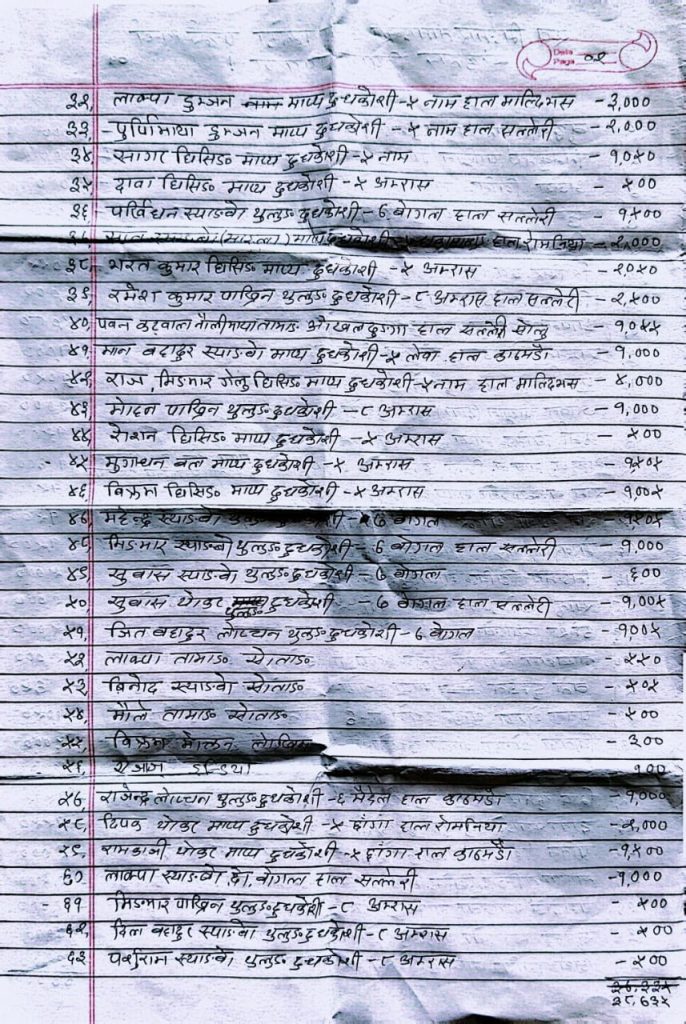 Date
Page 02
३२, लाक्पा डुम्जन माप्य दुधकोशी -५ नाम हाल माल्दिभस - ३,०००
३३, पुर्णिमाया डुम्जन माप्य दुधकोशी -५ नाम हाल सल्लेरी - २,०००
३४ सागर घिसिङ माप्य दुधकोशी -५ नाम - १,०५०
३५ दावा घिसिङ माप्य दुधकोशी -५ अम्रास - ५००
३६ स्याङवो थुलुङ दुधकोशी -७ वोगल हाल सल्लेरी - १,५००
माप्य दुधकोशी हाल रोमनिया - २,०००
३८ भरत कुमार घिसिङ माप्य दुधकोशी -५ अम्रास - २०५०
३९ रमेश कुमार पाख्रिन थुलुङ दुधकोशी -८ अम्रास हाल सल्लेरी - २,५००
४०, पवन कटवाल मैलीमाया तामाङ ओखलढुङ्गा हाल सल्लेरी सोलु - १,०५५
४१, मान बहादुर स्याङवो माप्य दुधकोशी -५ लेवा हाल काठमाडौ - १,०००
४२ राज, मिङमार गेलु घिसिङ माप्य दुधकोशी -५ नाम हाल माल्दिभस - ४,०००
४३ मोहन पाख्रिन थुलुङ दुधकोशी -८ अम्रास - १,०००
४४, रोशन घिसिङ माप्य दुधकोशी -५ अम्रास - ५००
४५ माप्य दुधकोशी -५ अम्रास - १५०५
४६, विक्रम घिसिङ माप्य दुधकोशी -५ अम्रास - १,००५
४७, महेन्द्र स्याङवो थुलुङ दुधकोशी - ७ वोगल - १५०५
४८ मिङमार स्याङवो थुलुङ दुधकोशी - ७ वोगल हाल सल्लेरी - १,०००
४९, सुवास स्याङवो थुलुङ दुधकोशी - ७ वोगल - ६००
५०, सुवास थोकर थुलुङ दुधकोशी - ७ वोगल हाल सल्लेरी - १,००५
५१, जित बहादुर लोप्चन थुलुङ दुधकोशी - ७ वोगल - १००५
५२ लाक्पा तामाङ सोताङ - ५५०
५३ विनोद स्याङवो सोताङ - ५०५
५४, मैले तामाङ सोताङ - ५००
५५, विक्रम मोक्तान - ३००
५६, इन्डिया १००
५७, राजेन्द्र लोप्चन थुलुङ दुधकोशी - ६ मैदेल हाल काठमाडौ - १,०००
५८, दिपक थोकर माप्य दुधकोशी -५ हाल रोमनिया - २,०००
५९, रामकाजी थोकर माप्य दुधकोशी -५ हाल काठमाडौ - १,५००
६० लाक्पा स्याङवो वोगल हाल सल्लेरी - १,०००
६१ मिङमार पाख्रिन थुलुङ दुधकोशी - ८ अम्रास - ५००
६२, बहादुर स्याङवो थुलुङ दुधकोशी - ८ अम्रास - ५००
६३ पर्शुराम स्याङवो थुलुङ दुधकोशी - ८ अम्रास - ५००
३८,६३५